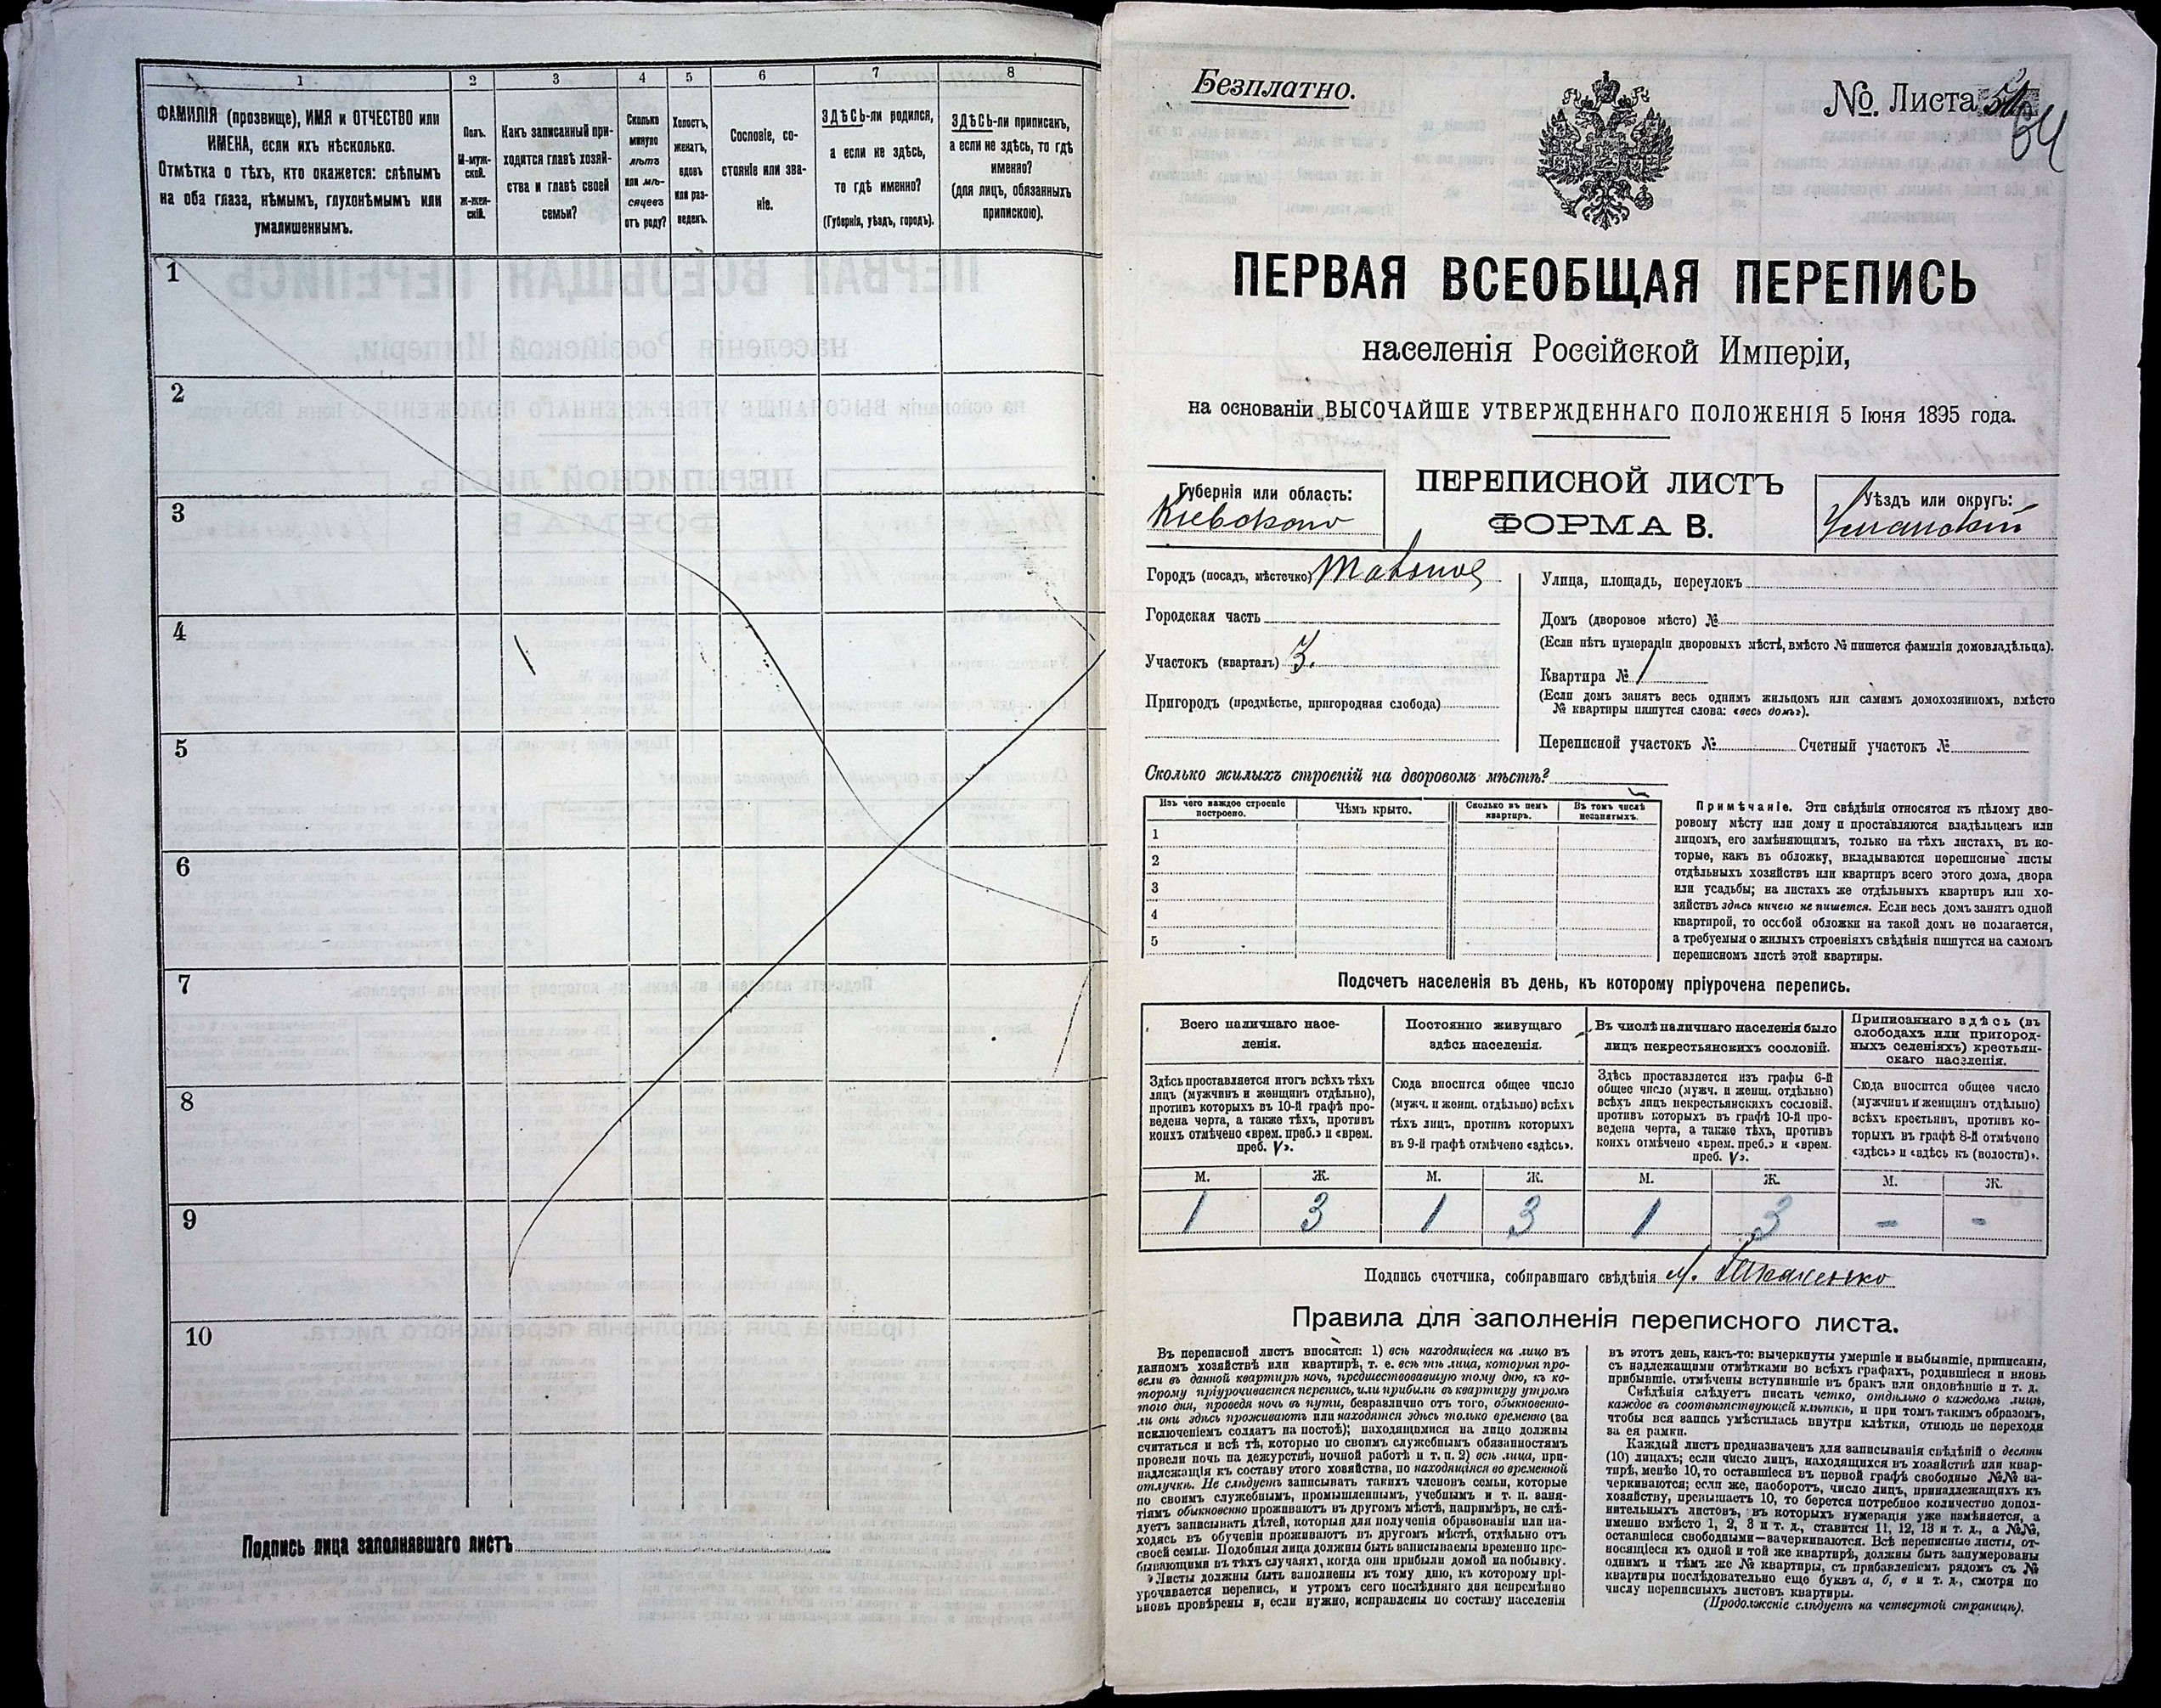 1
2
3
4
5
6
7
8
ФАМИЛІЯ (прозвище), ИМЯ и ОТЧЕСТВО или
ИМЕНА, если ихъ нѣсколько.
Отмѣтка о тѣхъ, кто окажется: слѣпымъ
на оба глаза, нѣмымъ, глухонѣмымъ или
умалишеннымъ.
Полъ.
М-муж-
ской.
Ж-жен-
скій.
Какъ записанный при-
ходится главѣ хозяй-
ства и главѣ своей
семьи?
Сколько
минуло
лѣтъ
или мѣ-
сяцевъ
отъ роду?
Холостъ,
женатъ,
вдовъ
или раз-
веденъ.
Сословіе, со-
стояніе или зва-
ніе.
ЗДѢСЬ-ли родился,
а если не здѣсь,
то гдѣ именно?
(Губернія, уѣздъ, городъ).
ЗДѢСЬ-ли приписанъ,
а если не здѣсь, то гдѣ
именно?
(для лицъ, обязанныхъ
припискою).
1
2
3
4
5
6
7
8
9
10
Подпись лица заполнявшаго листъ
Безплатно.
№. Листа
64
ПЕРВАЯ ВСЕОБЩАЯ ПЕРЕПИСЬ
населенія Россійской Имперіи,
на основаніи ВЫСОЧАЙШЕ УТВЕРЖДЕННАГО ПОЛОЖЕНІЯ 5 Іюня 1895 года.
Губернія или область:
Кіевскаго
ПЕРЕПИСНОЙ ЛИСТЪ
ФОРМА В.
Уѣздъ или округъ:
Уманскій
Городъ (посадъ, мѣстечко)
Городская часть
Участокъ (кварталъ) 3.
Пригородъ (предмѣстье, пригородная слобода)
Улица, площадь, переулокъ
Домъ (дворовое мѣсто) №
(Если нѣтъ нумераціи дворовыхъ мѣстъ, вмѣсто № пишется фамилія домовладѣльца).
Квартира № 1
(Если домъ занятъ весь однимъ жильцомъ или самимъ домохозяиномъ, вмѣсто
№ квартиры пишутся слова: «весь домъ»).
Переписной участокъ № Счетный участокъ №
Сколько жилыхъ строеній на дворовомъ мѣстѣ?
Изъ чего каждое строеніе
построено.
Чѣмъ крыто.
Сколько въ немъ
квартиръ.
Въ томъ числѣ
незанятыхъ.
1
2
3
4
5
Примѣчаніе. Эти свѣдѣнія относятся къ цѣлому дво-
ровому мѣсту или дому и проставляются владѣльцемъ или
лицомъ, его замѣняющимъ, только на тѣхъ листахъ, въ ко-
торые, какъ въ обложку, вкладываются переписные листы
отдѣльныхъ хозяйствъ или квартиръ всего этого дома, двора
или усадьбы; на листахъ же отдѣльныхъ квартиръ или хо-
зяйствъ здѣсь ничего не пишется. Если весь домъ занятъ одной
квартирой, то особой обложки на такой домъ не полагается,
а требуемыя о жилыхъ строеніяхъ свѣдѣнія пишутся на самомъ
переписномъ листѣ этой квартиры.
Подсчетъ населенія въ день, къ которому пріурочена перепись.
Всего наличнаго насе-
ленія.
Постоянно живущаго
здѣсь населенія.
Въ числѣ наличнаго населенія было
лицъ некрестьянскихъ сословій.
Приписаннаго здѣсь (въ
слободахъ или пригород-
ныхъ селеніяхъ) крестьян-
скаго населенія.
Здѣсь проставляется итогъ всѣхъ тѣхъ
лицъ (мужчинъ и женщинъ отдѣльно),
противъ которыхъ въ 10-й графѣ про-
ведена черта, а также тѣхъ, противъ
коихъ отмѣчено «врем. преб.» и «врем.
преб. V».
Сюда вносится общее число
(мужч. и женщ. отдѣльно) всѣхъ
тѣхъ лицъ, противъ которыхъ
въ 9-й графѣ отмѣчено «здѣсь».
Здѣсь проставляется изъ графы 6-й
общее число (мужч. и женщ. отдѣльно)
всѣхъ лицъ некрестьянскихъ сословій,
противъ которыхъ въ графѣ 10-й про-
ведена черта, а также тѣхъ, противъ
коихъ отмѣчено «врем. преб.» и «врем.
преб. V».
Сюда вносится общее число
(мужчинъ и женщинъ отдѣльно)
всѣхъ крестьянъ, противъ ко-
торыхъ въ графѣ 8-й отмѣчено
«здѣсь» и «здѣсь къ (волости)».
М. Ж. М. Ж. М. Ж. М. Ж.
1 3 1 3 1 3 - -
Подпись счетчика, собиравшаго свѣдѣнія
Правила для заполненія переписного листа.
Въ переписной листъ вносятся: 1) всѣ находящіеся на лицо въ
данномъ хозяйствѣ или квартирѣ, т. е. всѣ тѣ лица, которыя про-
вели въ данной квартирѣ ночь, предшествовавшую тому дню, къ ко-
торому пріурочивается перепись, или прибыли въ квартиру утромъ
того дня, проведя ночь въ пути, безразлично отъ того, обыкновенно-
ли они здѣсь проживаютъ или находятся здѣсь только временно (за
исключеніемъ солдатъ на постоѣ); находящимися на лицо должны
считаться и всѣ тѣ, которые по своимъ служебнымъ обязанностямъ
провели ночь на дежурствѣ, ночной работѣ и т. п. 2) всѣ лица, при-
надлежащія къ составу этого хозяйства, но находящіяся во временной
отлучкѣ. Не слѣдуетъ записывать такихъ членовъ семьи, которые
по своимъ служебнымъ, промышленнымъ, учебнымъ и т. п. заня-
тіямъ обыкновенно проживаютъ въ другомъ мѣстѣ, напримѣръ, не слѣ-
дуетъ записывать дѣтей, которыя для полученія образованія или на-
ходясь въ обученіи проживаютъ въ другомъ мѣстѣ, отдѣльно отъ
своей семьи. Подобныя лица должны быть записываемы временно пре-
бывающими въ тѣхъ случаяхъ, когда они прибыли домой на побывку.
Листы должны быть заполнены къ тому дню, къ которому прі-
урочивается перепись, и утромъ сего послѣдняго дня непремѣнно
вновь провѣрены и, если нужно, исправлены по составу населенія
въ этотъ день, какъ-то: вычеркнуты умершіе и выбывшіе, приписаны,
съ надлежащими отмѣтками во всѣхъ графахъ, родившіеся и вновь
прибывшіе, отмѣчены вступившіе въ бракъ или овдовѣвшіе и т. д.
Свѣдѣнія слѣдуетъ писать четко, отдѣльно о каждомъ лицѣ,
каждое въ соотвѣтствующей клѣткѣ, и при томъ такимъ образомъ,
чтобы вся запись умѣстилась внутри клѣтки, отнюдь не переходя
за ея рамки.
Каждый листъ предназначенъ для записыванія свѣдѣній о десяти
(10) лицахъ; если число лицъ, находящихся въ хозяйствѣ или квар-
тирѣ, менѣе 10, то оставшіеся въ первой графѣ свободные №№ за-
черкиваются; если же, наоборотъ, число лицъ, принадлежащихъ къ
хозяйству, превышаетъ 10, то берется потребное количество допол-
нительныхъ листовъ, въ которыхъ нумерація уже измѣняется, а
именно вмѣсто 1, 2, 3 и т. д., ставится 11, 12, 13 и т. д., а №№,
оставшіеся свободными—зачеркиваются. Всѣ переписные листы, от-
носящіеся къ одной и той же квартирѣ, должны быть занумерованы
однимъ и тѣмъ же № квартиры, съ прибавленіемъ рядомъ съ №
квартиры послѣдовательно еще буквъ а, б, в и т. д., смотря по
числу переписныхъ листовъ квартиры.
(Продолженіе слѣдуетъ на четвертой страницѣ).